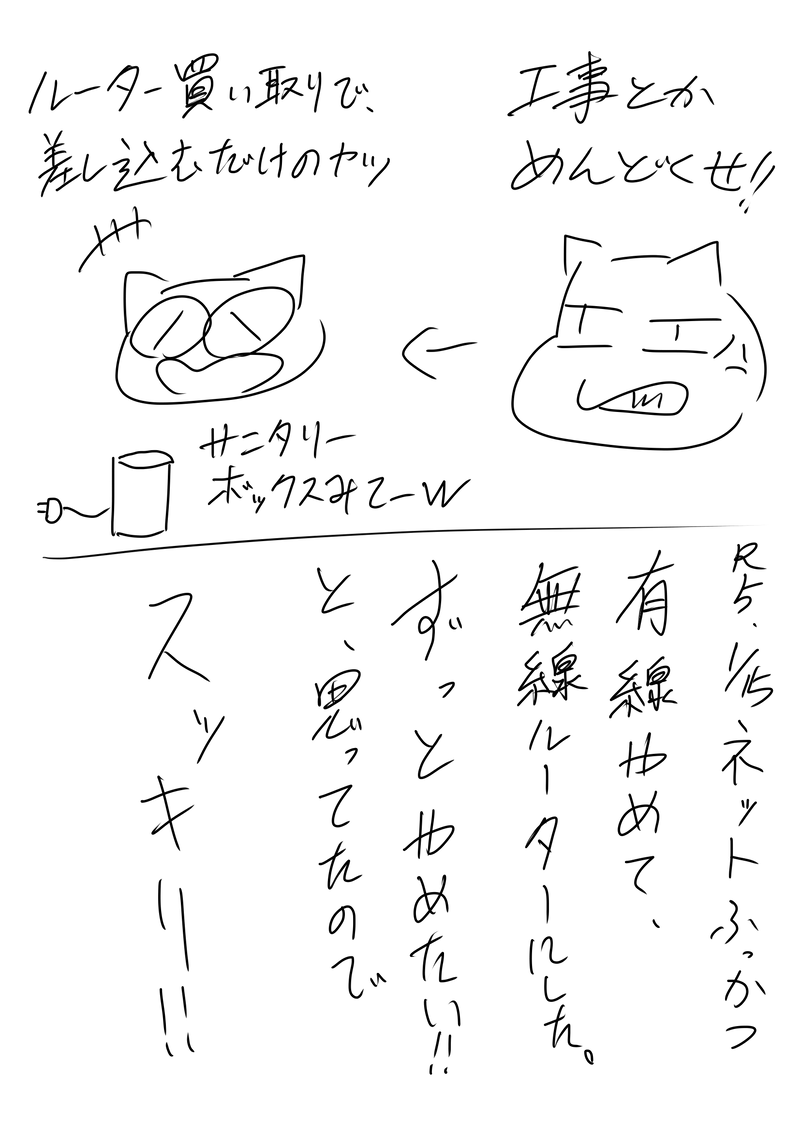 工事とか
めんどくせ!!
ルーター買い取りで、
差し込むだけのヤツ
サニタリー
ボックスみてーw
R5.1/15ネットふっかつ
有線やめて、
無線ルーターにした。
ずっとやめたい!!
と、思ってたので
スッキリ!!